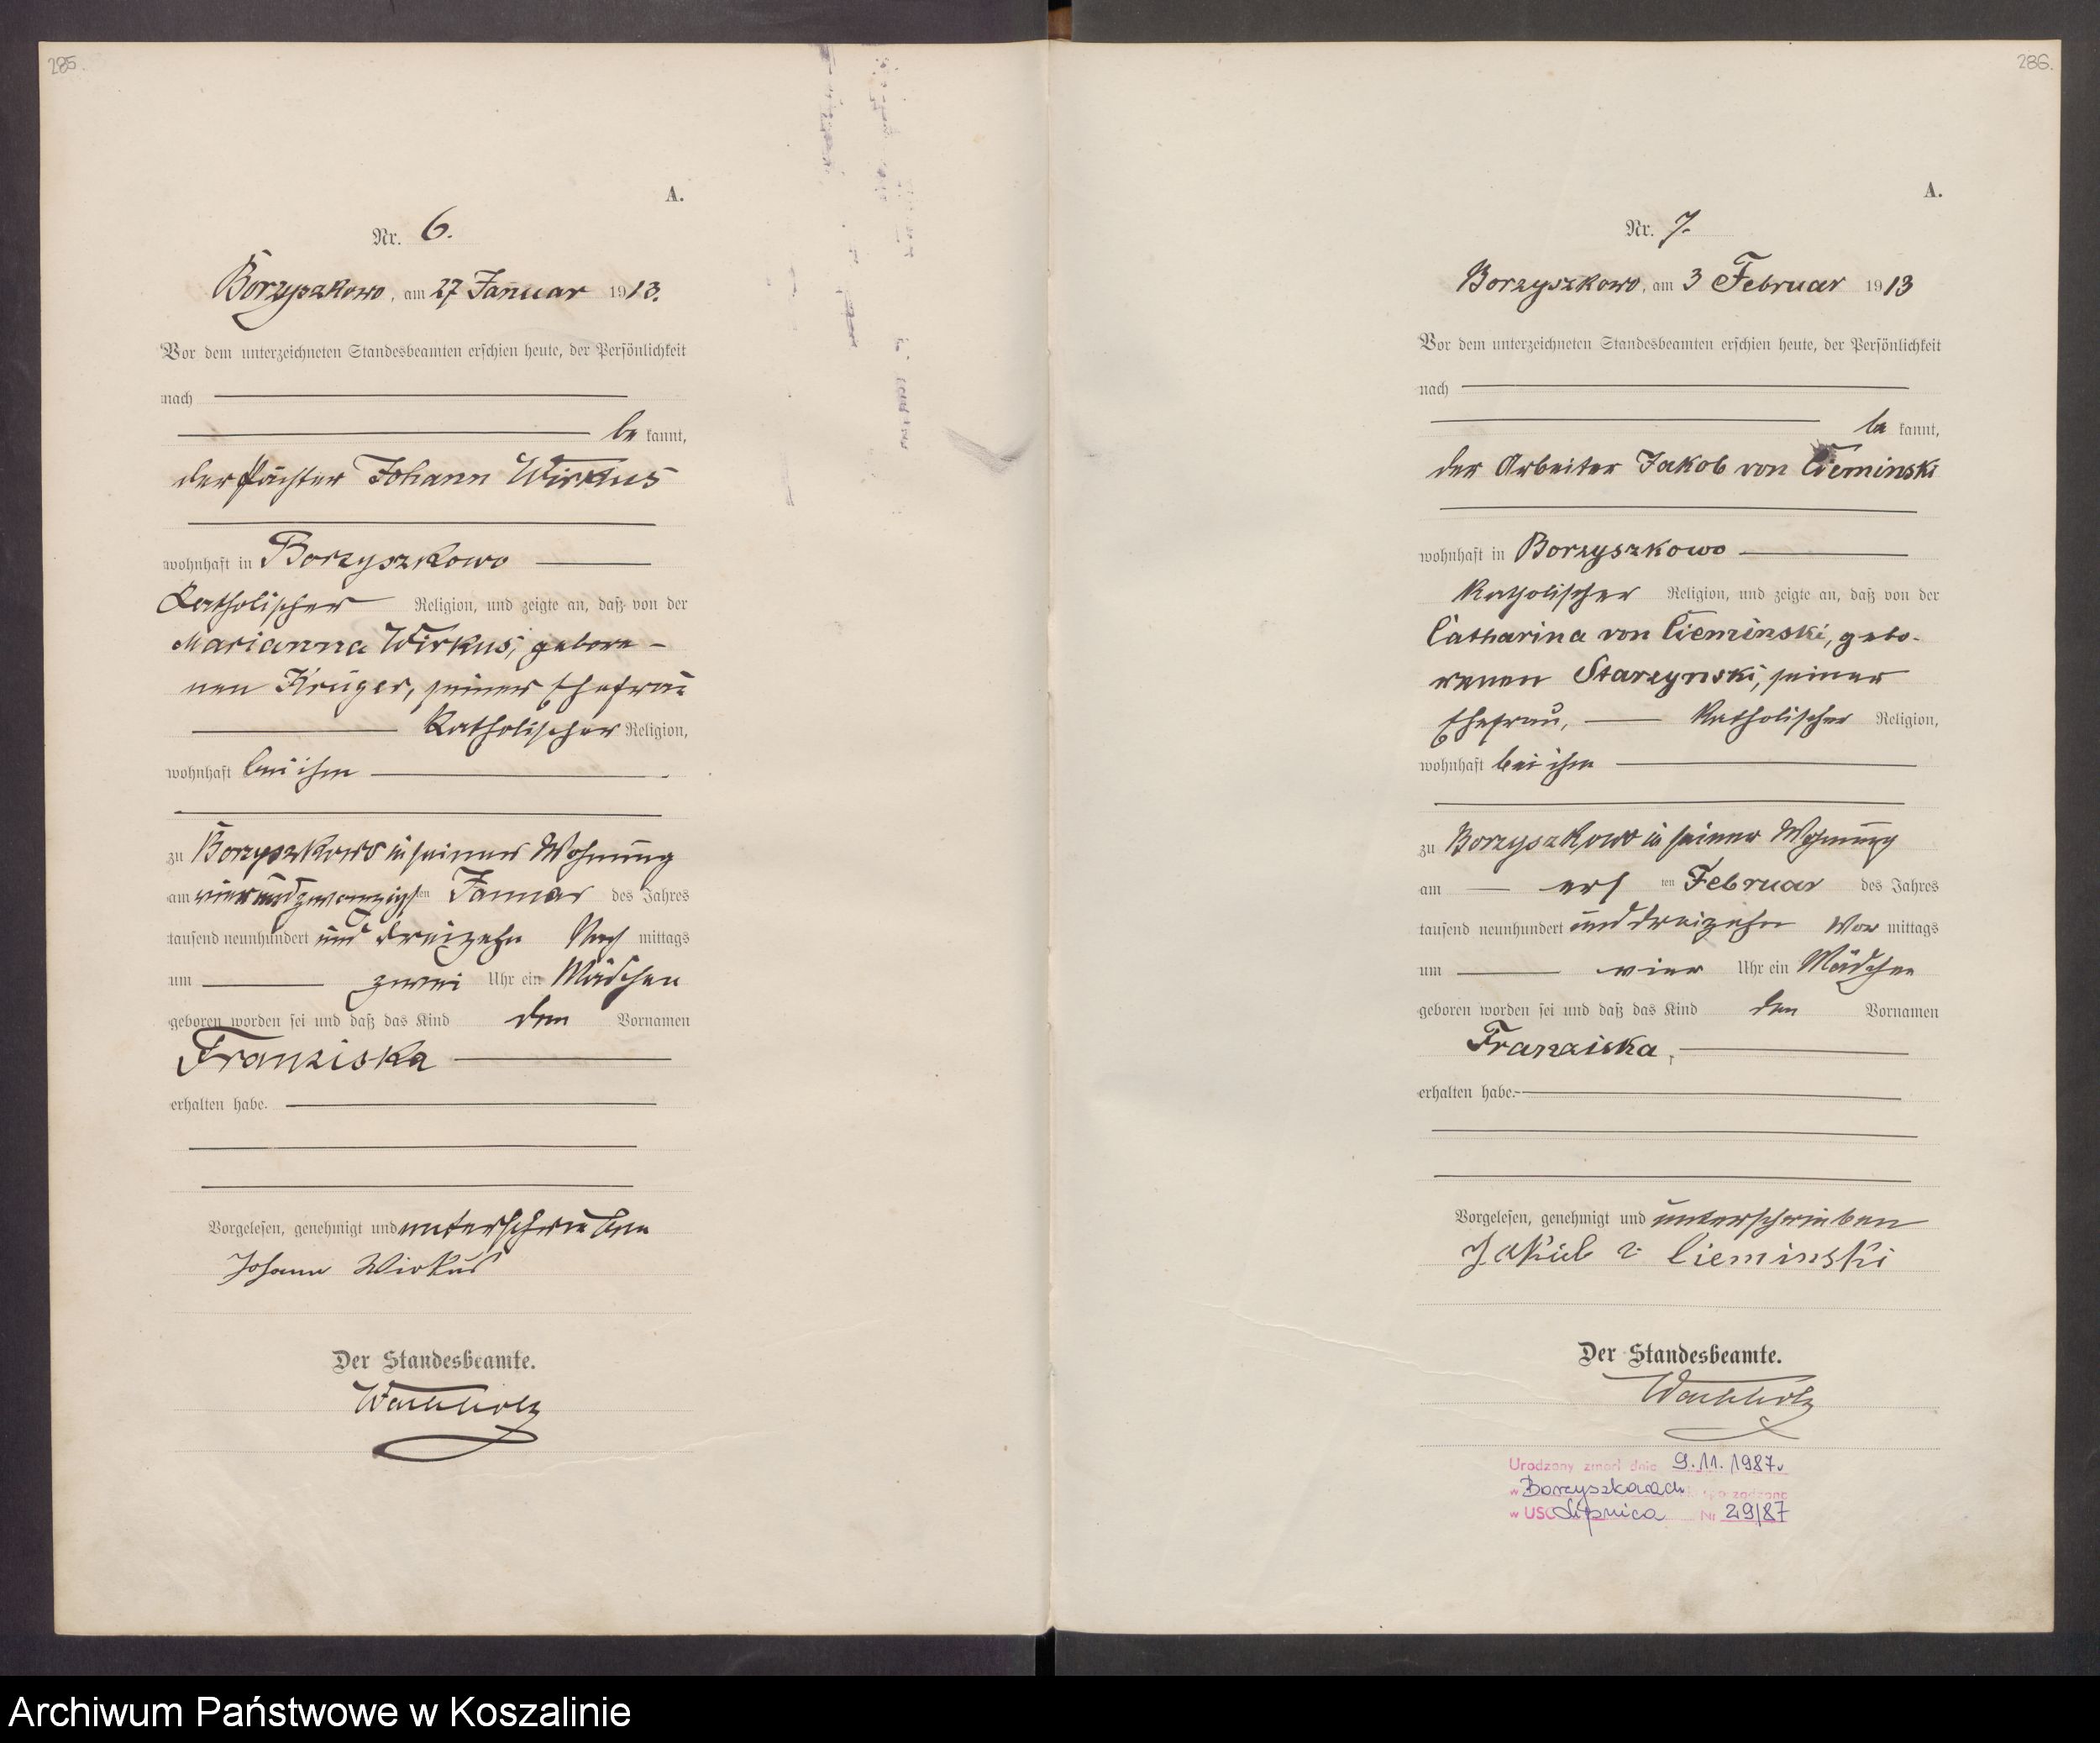 285.
A.
Nr. 6.
Borzyszkowo, am 27 Januar 1913.
Vor dem unterzeichneten Standesbeamten erschien heute, der Persönlichkeit
nach
be kannt,
der Pächter Johann Wirkus
wohnhaft in Borzyszkowo
katholischer Religion, und zeigte an, daß von der
Marianna Wirkus, gebore-
nen Krüger, seiner Ehefrau
katholischer Religion,
wohnhaft bei ihm
zu Borzyszkowo in seiner Wohnung
am vierundzwanzigsten Januar des Jahres
tausend neunhundert und dreizehn Nach mittags
um zwei Uhr ein Mädchen
geboren worden sei und daß das Kind den Vornamen
Franziska
erhalten habe.
Vorgelesen, genehmigt und unterschrieben
Johann Wirkus
Der Standesbeamte.
Wachholz
286.
A.
Nr. 7.
Borzyszkowo, am 3 Februar 1913
Vor dem unterzeichneten Standesbeamten erschien heute, der Persönlichkeit
nach
be kannt,
der Arbeiter Jakob von Cieminski
wohnhaft in Borzyszkowo
katholischer Religion, und zeigte an, daß von der
Catharina von Cieminski, gebo-
renen Starzynski, seiner
Ehefrau, katholischer Religion,
wohnhaft bei ihm
zu Borzyszkowo in seiner Wohnung
am ers ten Februar des Jahres
tausend neunhundert und dreizehn Vor mittags
um vier Uhr ein Mädchen
geboren worden sei und daß das Kind den Vornamen
Franziska,
erhalten habe.
Vorgelesen, genehmigt und unterschrieben
Jakub v. Cieminski
Der Standesbeamte.
Wachholz
Urodzony zmarł dnia 9.11.1987r
w Borzyszkowach
w USC Lipnica Nr 29/87
Archiwum Państwowe w Koszalinie